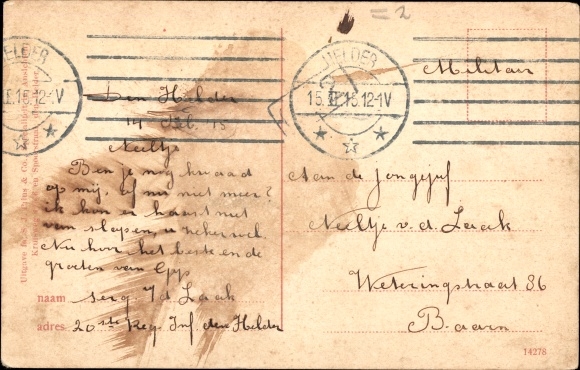 = 2
HELDER
15.II.15.12-1V
HELDER
15.12-1V
Militair
Den Helder
14 Feb. 15
Neeltje
Ben je nog kwaad
op mij, of nu niet meer?
ik kon er haast niet
van slapen, u zeker wel.
Nu hoor het beste en de
groeten van
naam serg. v d Laak
adres 20ste Reg. Inf. den Helder
Aan de Jongejuf
Neeltje v. d. Laak
Weteringstraat 86
Baarn
14278
Uitgave